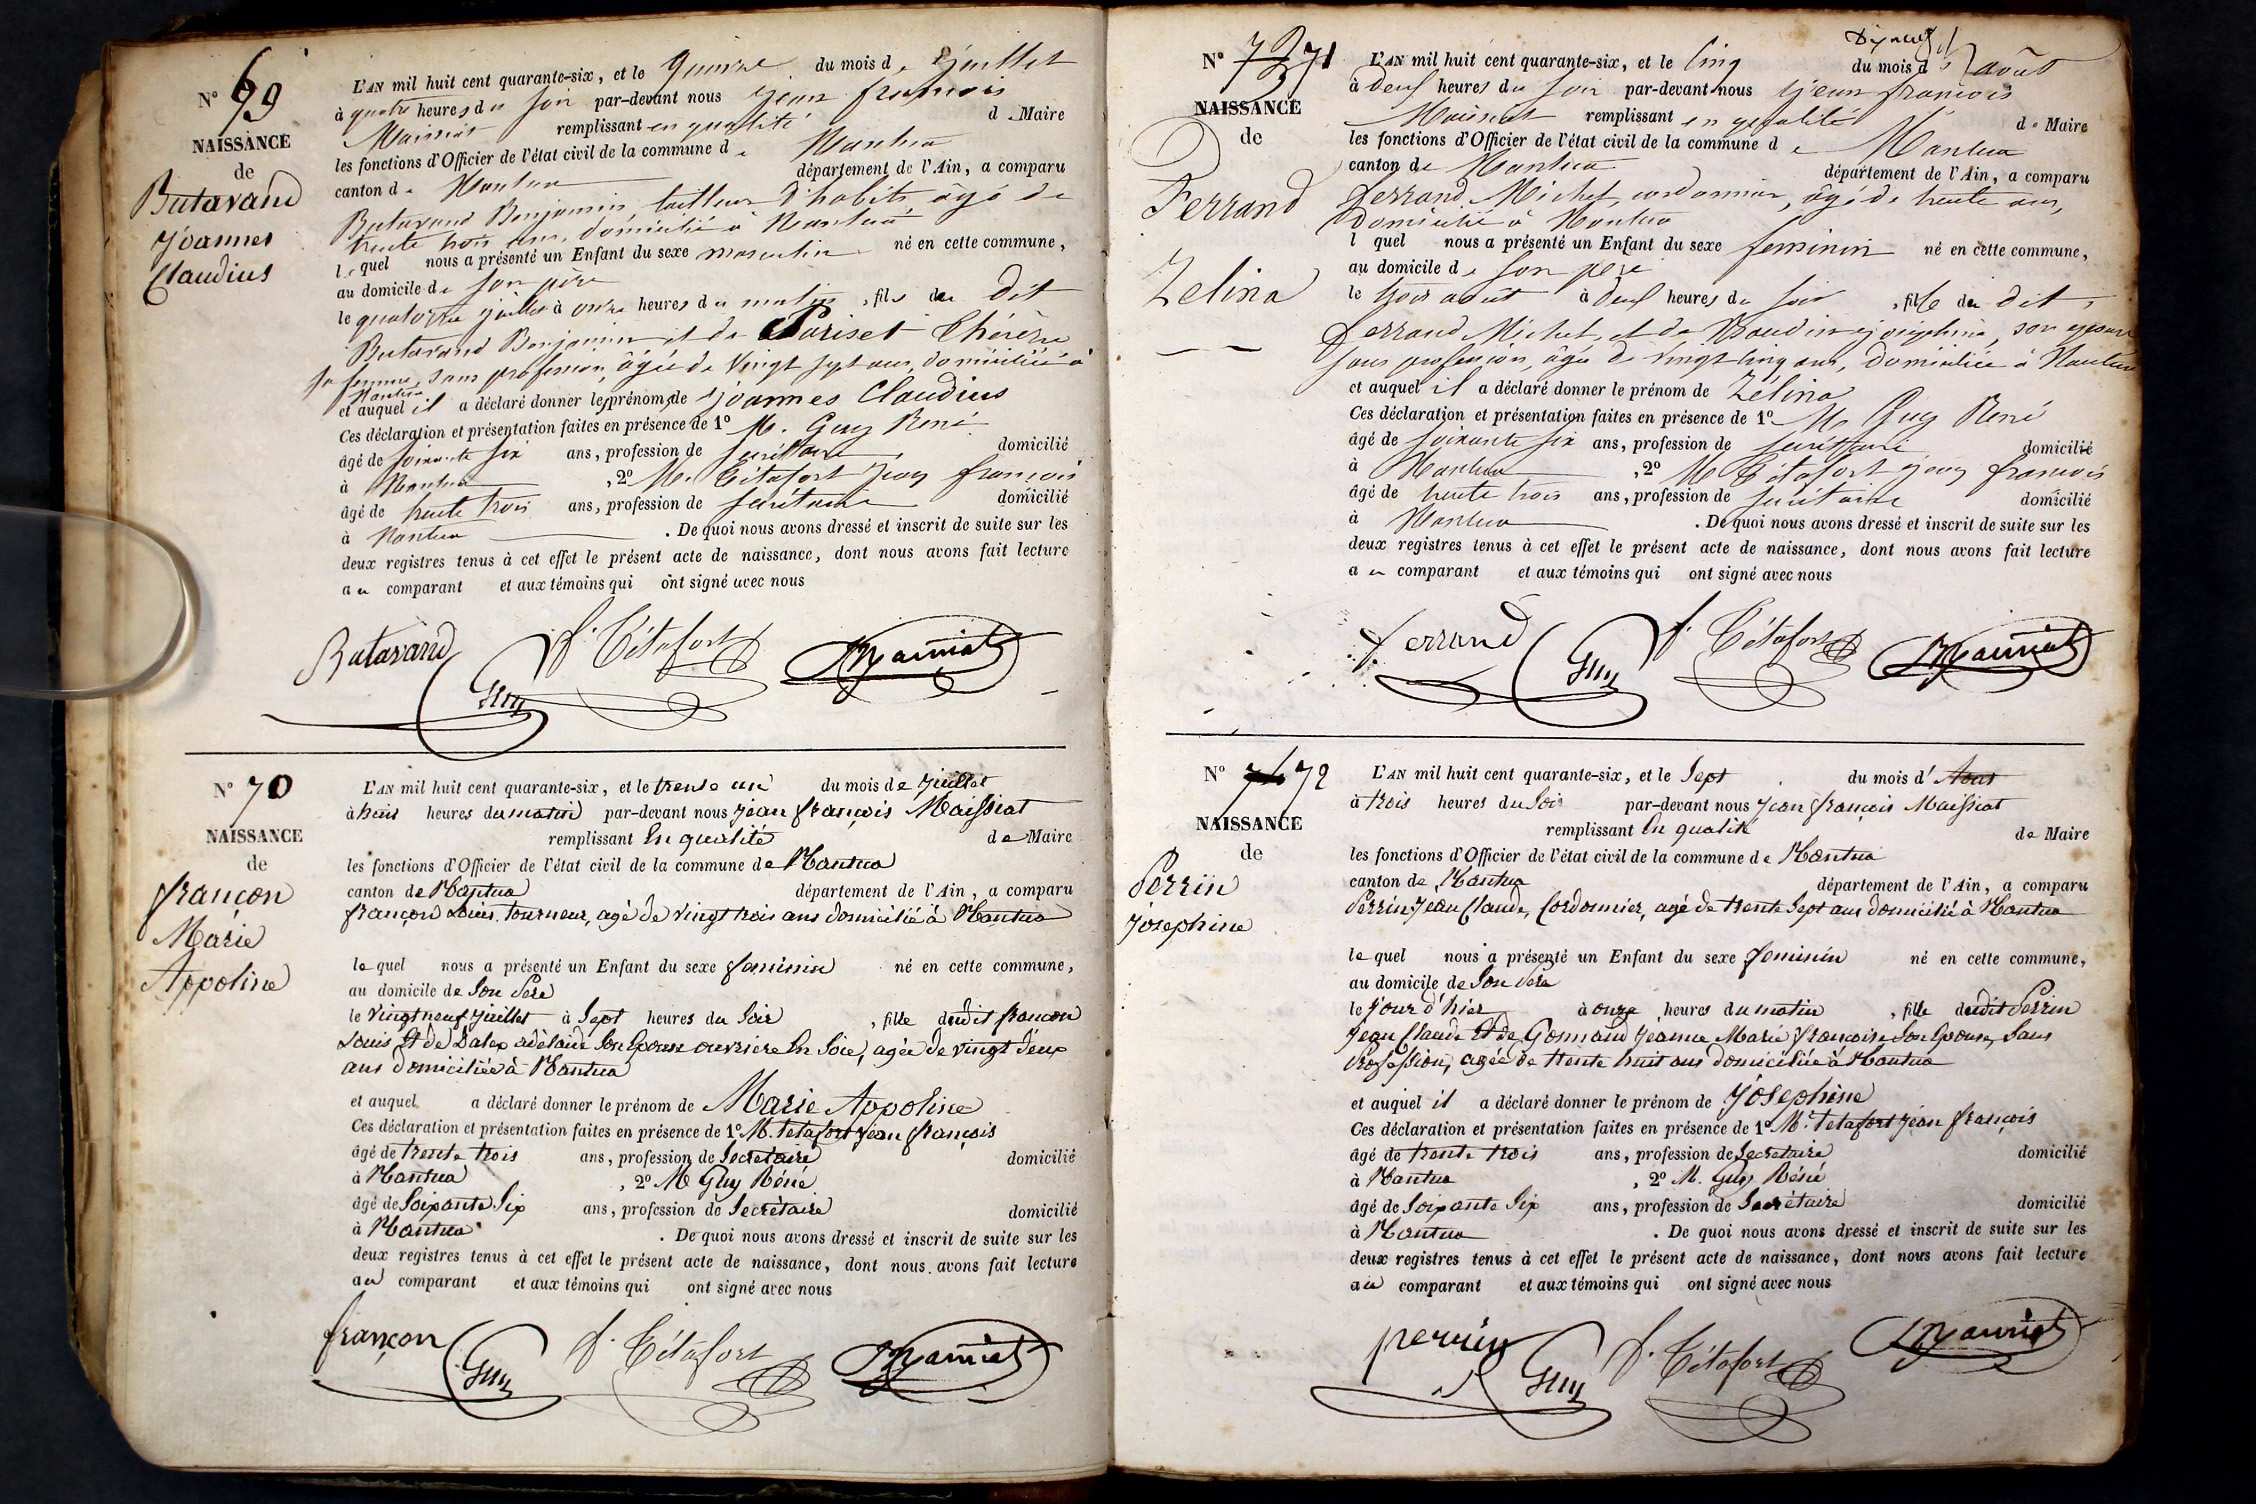 N° 69
NAISSANCE
de
Butavand
Joannes
Claudius
L'AN mil huit cent quarante-six, et le quinze du mois de Juillet
à quatre heures du soir par-devant nous Jean françois
Maissiat remplissant en qualité de Maire
les fonctions d'Officier de l'état civil de la commune de Nantua
canton de Nantua département de l'Ain, a comparu
Butavand Benjamin, tailleur d'habits, âgé de
trente trois ans, domicilié à Nantua
lequel nous a présenté un Enfant du sexe masculin né en cette commune,
au domicile de son père
le quatorze juillet à onze heures du matin, fils du dit
Butavand Benjamin et de Pariset Thérèse
sa femme, sans profession, âgée de vingt sept ans, domiciliée à
Nantua
et auquel il a déclaré donner les prénoms de Joannes Claudius
Ces déclaration et présentation faites en présence de 1° M. Guy René
âgé de soixante six ans, profession de secrétaire domicilié
à Nantua, 2° M. Tétafort Jean françois
âgé de trente trois ans, profession de secrétaire domicilié
à Nantua. De quoi nous avons dressé et inscrit de suite sur les
deux registres tenus à cet effet le présent acte de naissance, dont nous avons fait lecture
au comparant et aux témoins qui ont signé avec nous
Butavand Guy f. Tétafort Maissiat
N° 70
NAISSANCE
de
françon
Marie
Appoline
L'AN mil huit cent quarante-six, et le trente un du mois de Juillet
à huit heures du matin par-devant nous Jean françois Maissiat
remplissant en qualité de Maire
les fonctions d'Officier de l'état civil de la commune de Nantua
canton de Nantua département de l'Ain, a comparu
françon Louis, tourneur, agé de vingt trois ans domicilié à Nantua
lequel nous a présenté un Enfant du sexe feminin né en cette commune,
au domicile de Son Pere
le vingt neuf Juillet à Sept heures du Soir, fille dudit françon
Louis Et de Dalex adélaide Son Epouse ouvriere En Soie, agée de vingt deux
ans domiciliée à Nantua
et auquel a déclaré donner le prénom de Marie Appoline
Ces déclaration et présentation faites en présence de 1° M. Tetafort Jean françois
âgé de trente trois ans, profession de Secretaire domicilié
à Nantua, 2° M Guy Réné
âgé de Soixante Six ans, profession de Secrétaire domicilié
à Nantua. De quoi nous avons dressé et inscrit de suite sur les
deux registres tenus à cet effet le présent acte de naissance, dont nous avons fait lecture
au comparant et aux témoins qui ont signé avec nous
françon Guy f. Tétafort Maissiat
N° 73 71
NAISSANCE
de
Ferrand
Zelina
L'AN mil huit cent quarante-six, et le cinq du mois d' août
à deux heures du soir par-devant nous Jean françois
Maissiat remplissant en qualité de Maire
les fonctions d'Officier de l'état civil de la commune de Nantua
canton de Nantua département de l'Ain, a comparu
ferrand Michel, cordonnier, âgé de trente ans,
domicilié à Nantua
l quel nous a présenté un Enfant du sexe feminin né en cette commune,
au domicile de son père
le trois août à deux heures du soir, fille du dit
ferrand Michel, et de Joséphine, son epouse
sans profession, âgée de vingt cinq ans, domiciliée à Nantua
et auquel il a déclaré donner le prénom de Zélina
Ces déclaration et présentation faites en présence de 1° M. Guy René
âgé de soixante six ans, profession de secrétaire domicilié
à Nantua, 2° M Tétafort Jean françois
âgé de trente trois ans, profession de secrétaire domicilié
à Nantua. De quoi nous avons dressé et inscrit de suite sur les
deux registres tenus à cet effet le présent acte de naissance, dont nous avons fait lecture
au comparant et aux témoins qui ont signé avec nous
ferrand Guy f. Tétafort Maissiat
N° 74 72
NAISSANCE
de
Perrin
Josephine
L'AN mil huit cent quarante-six, et le Sept du mois d' Aout
à trois heures du Soir par-devant nous Jean françois Maissiat
remplissant En qualité de Maire
les fonctions d'Officier de l'état civil de la commune de Nantua
canton de Nantua département de l'Ain, a comparu
Perrin Jean Claude, Cordonnier, agé de trente Sept ans domicilié à Nantua
lequel nous a présenté un Enfant du sexe feminin né en cette commune,
au domicile de Son Pere
le Jour d'hier à onze heures du matin, fille dudit Perrin
Jean Claude Et de Gonnand Jeanne Marie françoise Son Epouse, Sans
Profession, agée de trente huit ans domiciliée à Nantua
et auquel il a déclaré donner le prénom de Joséphine
Ces déclaration et présentation faites en présence de 1° M. Tetafort Jean françois
âgé de trente trois ans, profession de Secretaire domicilié
à Nantua, 2° M. Guy Réné
âgé de Soixante Six ans, profession de Secrétaire domicilié
à Nantua. De quoi nous avons dressé et inscrit de suite sur les
deux registres tenus à cet effet le présent acte de naissance, dont nous avons fait lecture
au comparant et aux témoins qui ont signé avec nous
perrin Guy f. Tétafort Maissiat